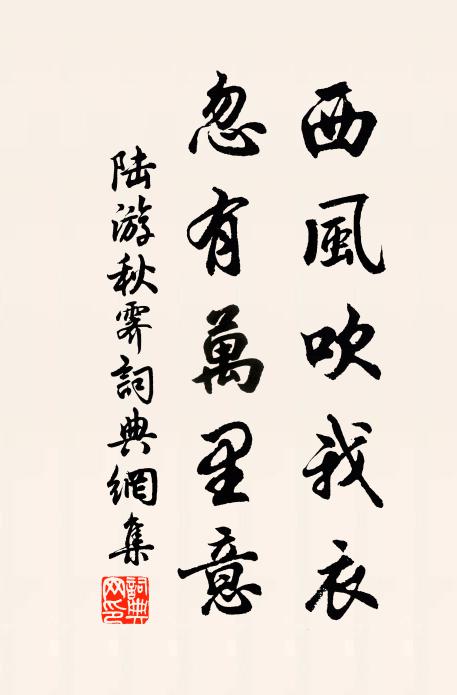 西風吹我衣
忽有萬里意
陸游秋霽詞典網集
詞典網印